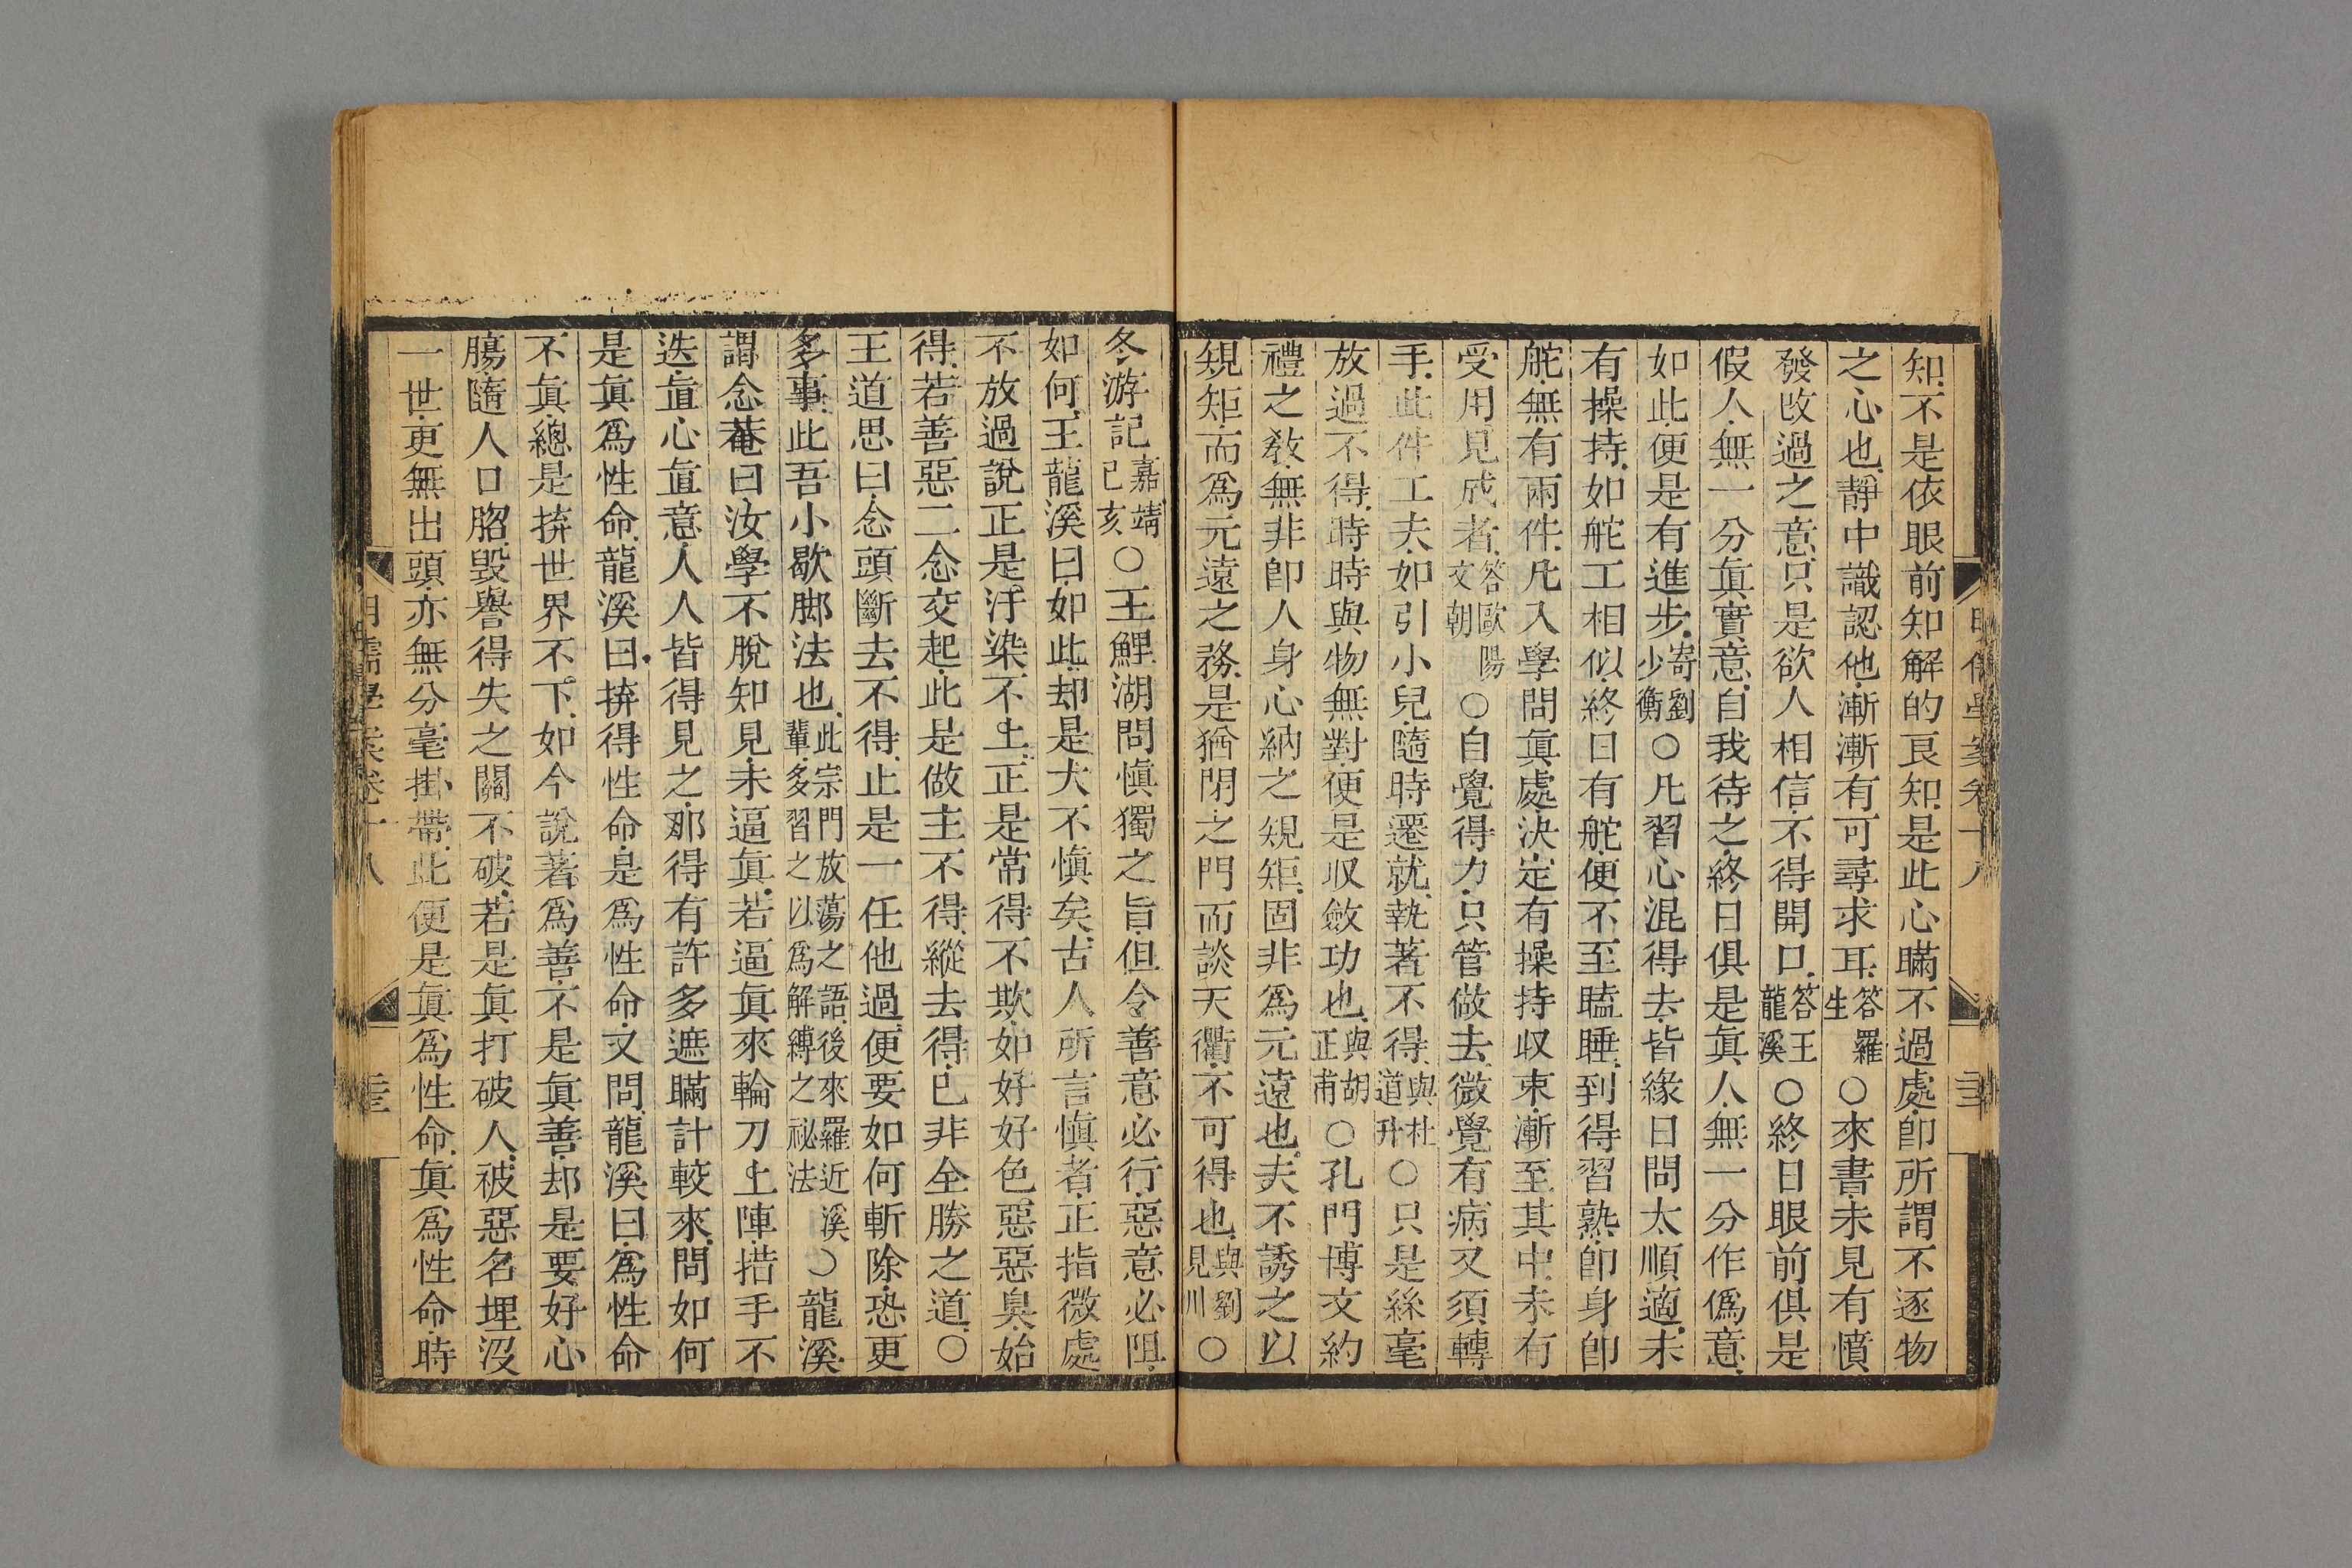 知不是依眼前知解的良知是此心瞞不過處卽所謂不逐物
之心也靜中識認他漸漸有可尋求耳答羅生○來書未見有憤
發改過之意只是欲人相信不得開口答王龍溪○終日眼前俱是
假人無一分眞實意自我待之終日俱是眞人無一分作僞意
如此便是有進步寄劉少衡○凡習心混得去皆緣日問太順適未
有操持如舵工相似終日有舵便不至瞌睡到得習熟卽身卽
舵無有兩件凡入學問眞處決定有操持収束漸至其中未有
受用見成者答歐陽文朝○自覺得力只管做去微覺有病又須轉
手此件工夫如引小兒隨時遷就執著不得與杜道升○只是絲毫
放過不得時時與物無對便是収斂功也與胡正甫○孔門博文約
禮之敎無非卽人身心納之規矩固非爲元遠也夫不誘之以
規矩而爲元遠之務是猶閉之門而談天衢不可得也與劉見川○
冬游記嘉靖己亥○王鯉湖問愼獨之旨但令善意必行惡意必阻
如何王龍溪曰如此却是大不愼矣古人所言愼者正指微處
不放過說正是汙染不上正是常得不欺如好好色惡惡臭始
得若善惡二念交起此是做主不得縱去得已非全勝之道○
王道思曰念頭斷去不得止是一任他過便要如何斬除恐更
多事此吾小歇脚法也此宗門放蕩之語後來羅近溪輩多習之以爲解縛之祕法○龍溪
謂念菴曰汝學不脫知見未逼眞若逼眞來輪刀上陣措手不
迭直心直意人人皆得見之那得有許多遮瞞計較來問如何
是眞爲性命龍溪曰拚得性命是爲性命又問龍溪曰爲性命
不眞總是拚世界不下如今說著爲善不是眞善却是要好心
腸隨人口脗毀譽得失之關不破若是眞打破人被惡名埋沒
一世更無出頭亦無分毫掛帶此便是眞爲性命眞爲性命時
明儒學案卷十八